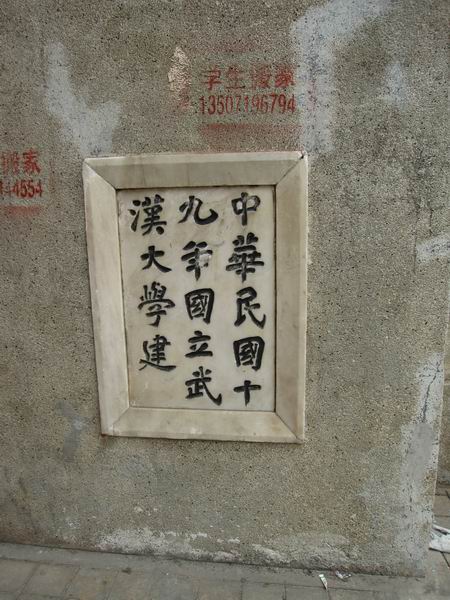 学生搬家
13507196794
搬家
44554
中華民國十
九年國立武
漢大學建